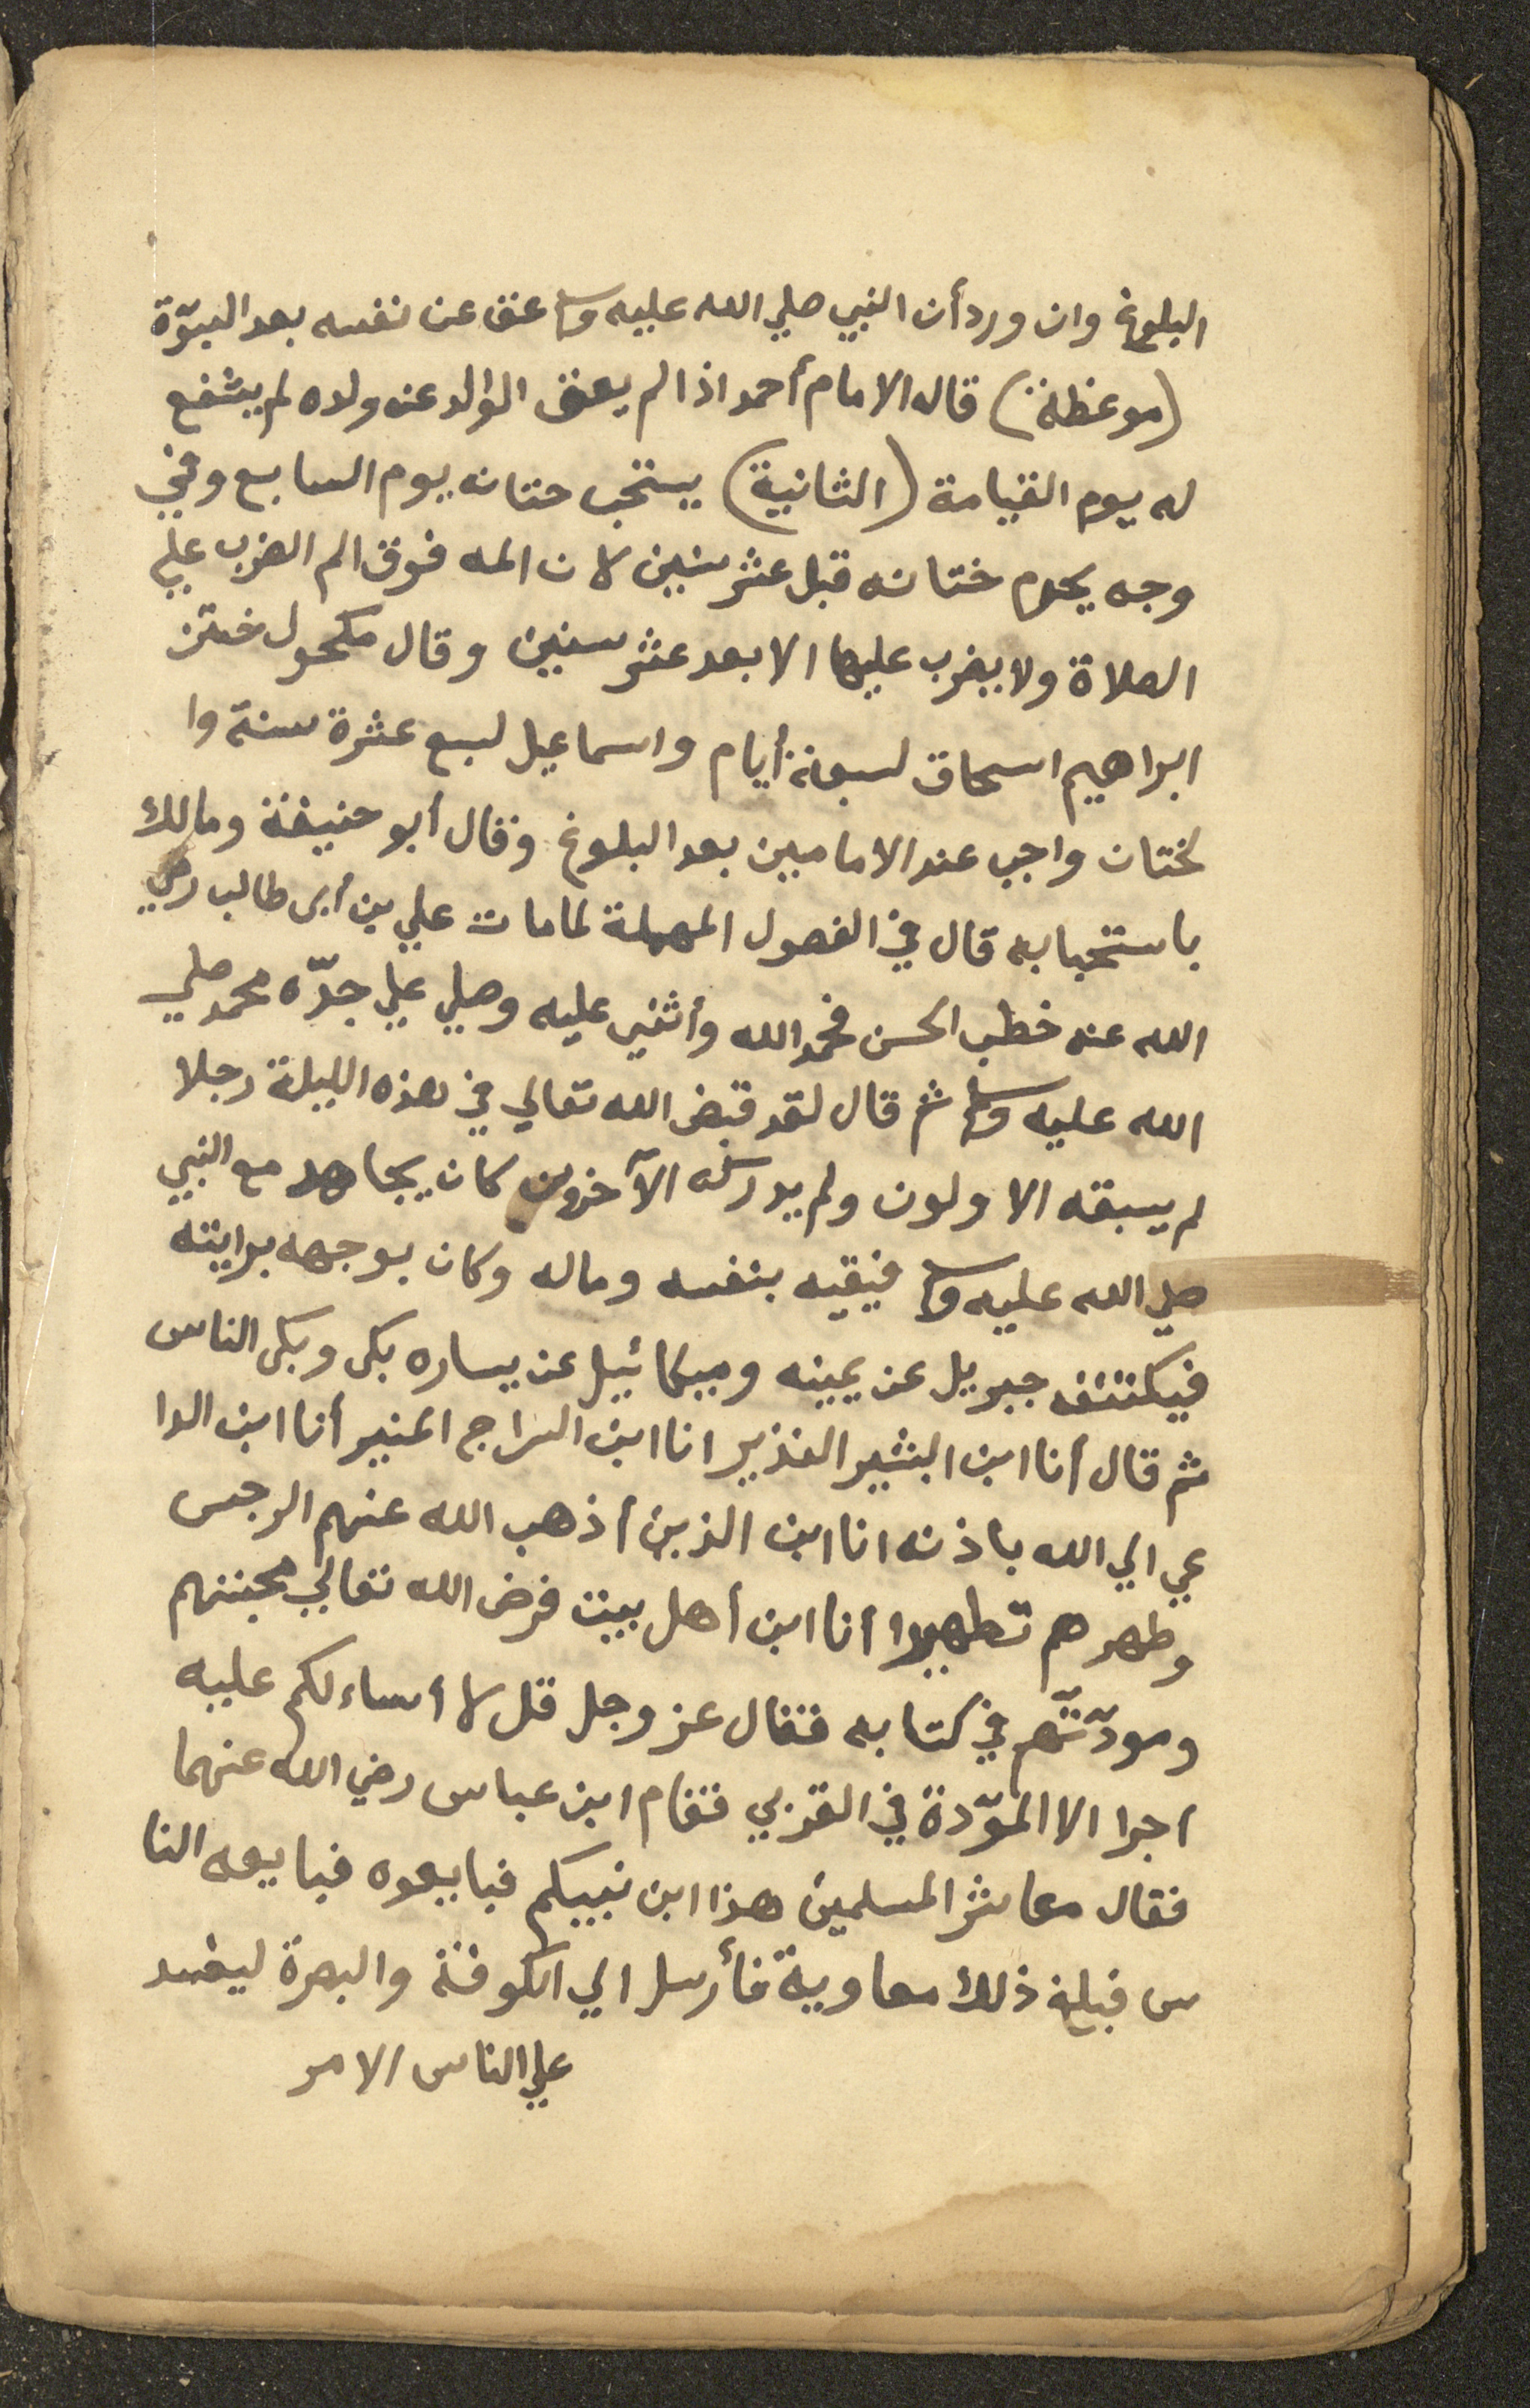 البلوغ وان ورد أن النبي صلي الله عليه وسلم عق عن نفسه بعد النبوّة
(موعظة) قال الامام أحمد اذا لم يعق الوالد عن ولده لم يشفع
له يوم القيامة (الثانية) يستحب ختانه يوم السابع وفي
وجه يحرم ختانه قبل عشر سنين لان المه فوق الم الضرب علي
الصلاة ولا يضرب عليها الا بعد عشر سنين وقال مكحول ختن
ابراهيم اسحاق لسبعة أيام واسماعيل لسبع عشرة سنة وا
لختان واجب عند الامامين بعد البلوغ وقال أبو حنيفة ومالك
باستحبابه قال في الفصول المهملة لما مات علي بن أبى طالب رضي
الله عنه خطب الحسن فحمد الله وأثني عليه وصلي علي جدّه محمد صلي
الله عليه وسلم ثم قال لقد قبض الله تعالي في هذه الليلة رجلا
لم يسبقه الا ولون ولم يدركه الآخرون كان يجاهد مع النبي
صلي الله عليه وسلم فيقيه بنفسه وماله وكان يوجهه برايته
فيكتنفه جبريل عن يمينه وميكائيل عن يساره بكى وبكى الناس
ثم قال أنا ابن البشير النذير انا ابن السراج المنير أنا ابن الدا
عي الي الله باذنه انا ابن الذين أذهب الله عنهم الرجس
وطهرهم تطهيرا أنا ابن أهل بيت فرض الله تعالي محبتهم
ومودّتهم في كتابه فقال عز وجل قل لا أساءلكم عليه
اجرا الا الموّدة في القربي فقام ابن عباس رضي الله عنهما
فقال معاشر المسلمين هذا ابن نبيكم فبايعوه فبايعه النا
س فبلغ ذلك معاوية فأرسل الي الكوفة والبصرة ليفسد
علي الناس الامر